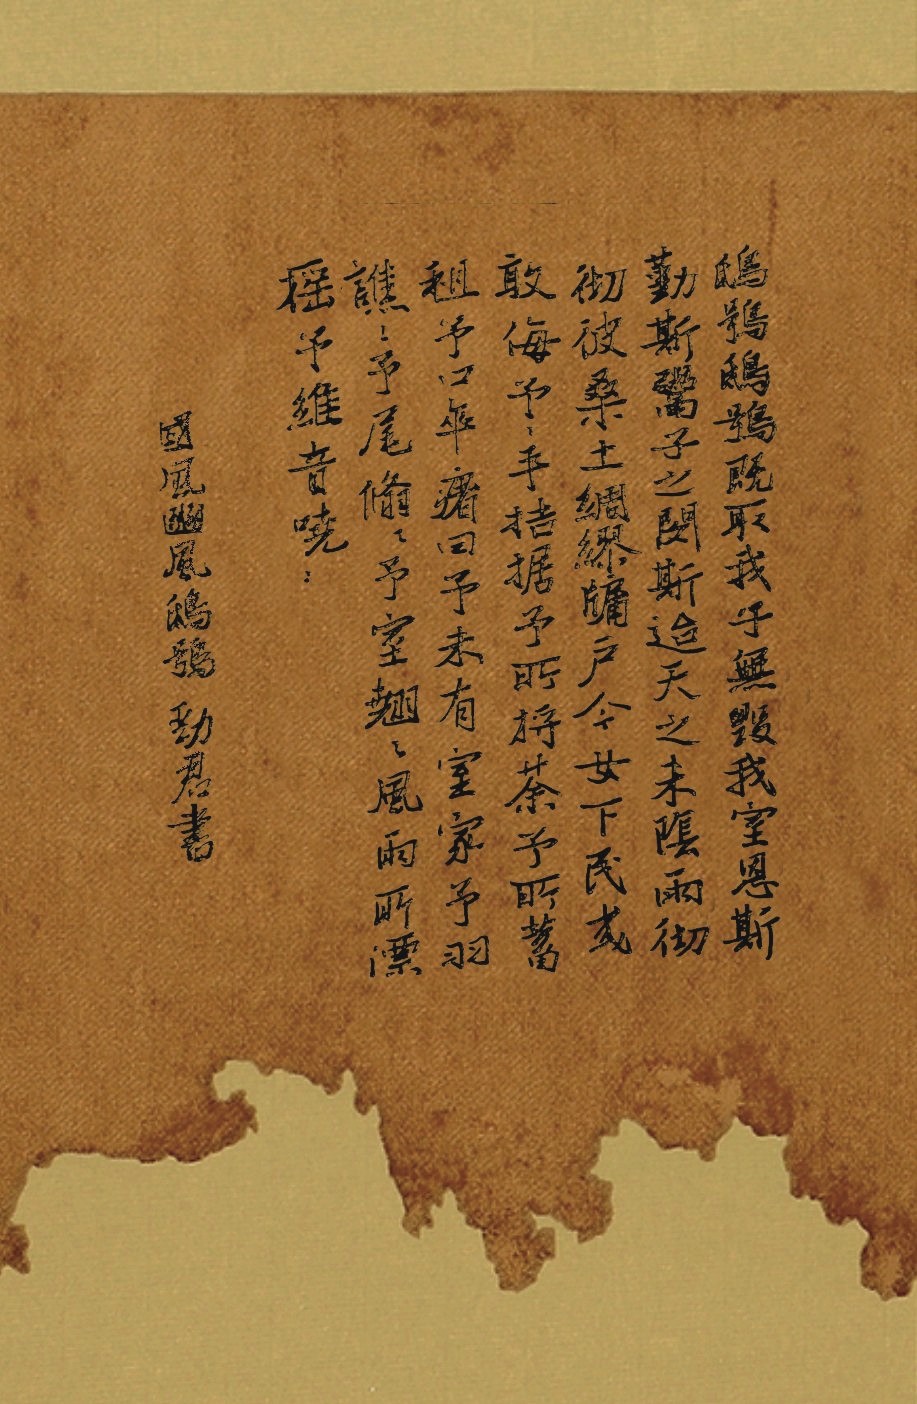 鴟鴞鴟鴞既取我子無毀我室恩斯
勤斯鬻子之閔斯迨天之未隂雨彻
彻彼桑土綢繆牖戶今女下民或
敢侮予〻手拮据予所捋荼予所蓄
租予口卒瘏曰予未有室家予羽
譙〻予尾翛〻予室翹〻風雨所漂
摇予維音嘵〻
國風豳風鴟鴞 勁君書